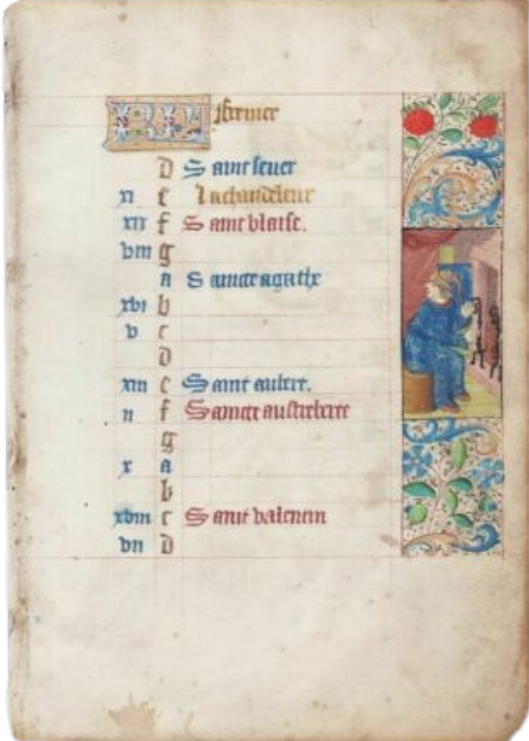 KL feurier
d Saint seuer
xi e La chandeleur
xix f Saint blaise.
viii g
a Saincte agathe
xvi b
v c
d
xiii e Saint aubert.
ii f Saincte austreberte
g
x a
b
xviii c Saint valentin
vii d